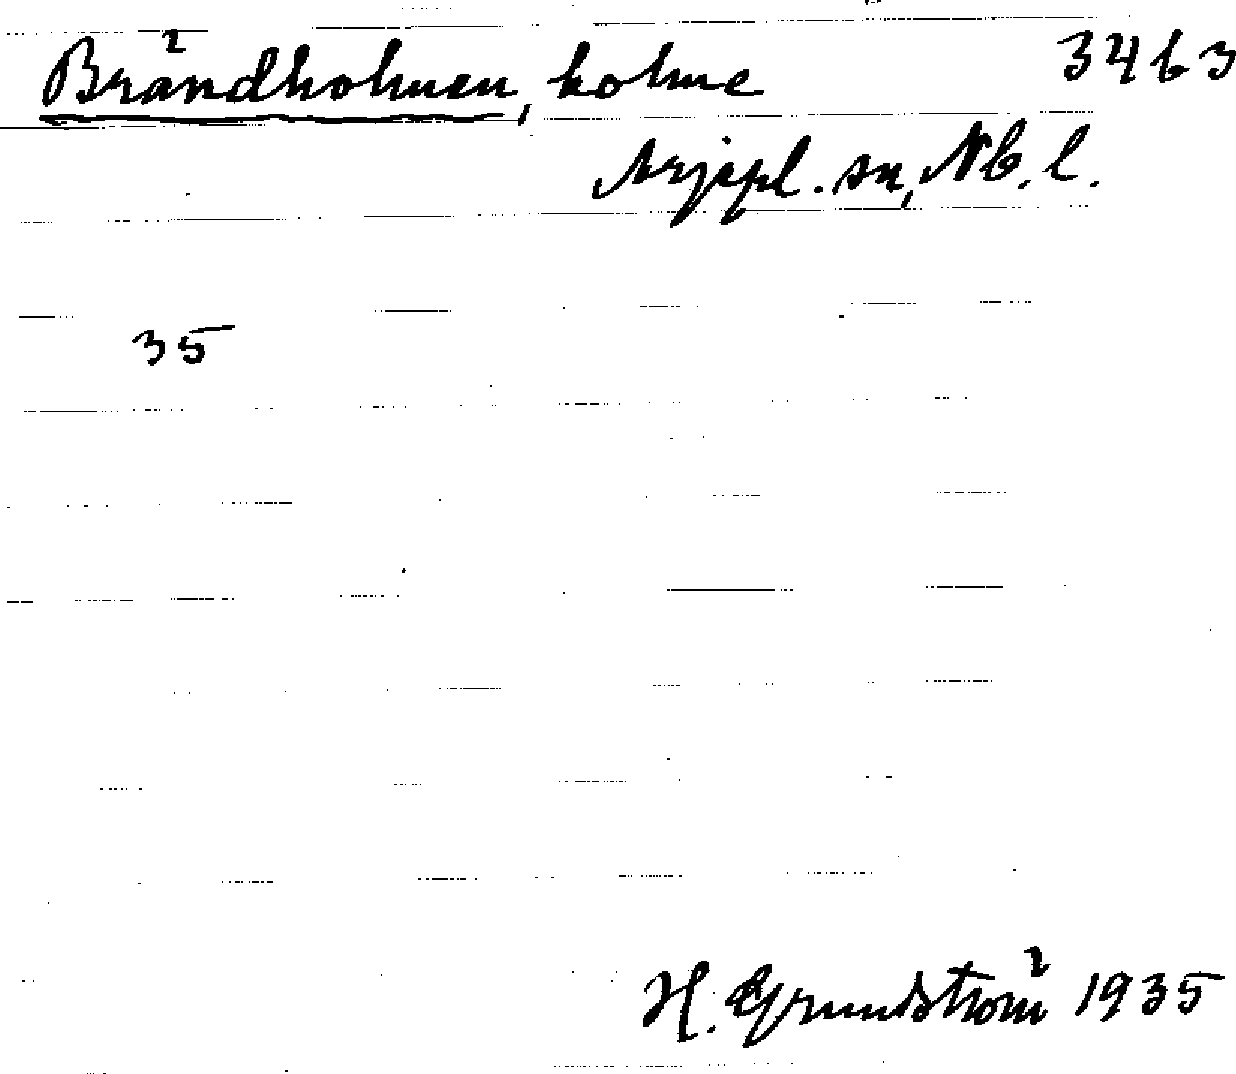 Brändholmen, holme 3463
Arjepl. sn, Nb. l.
35
H. Grundström 1935